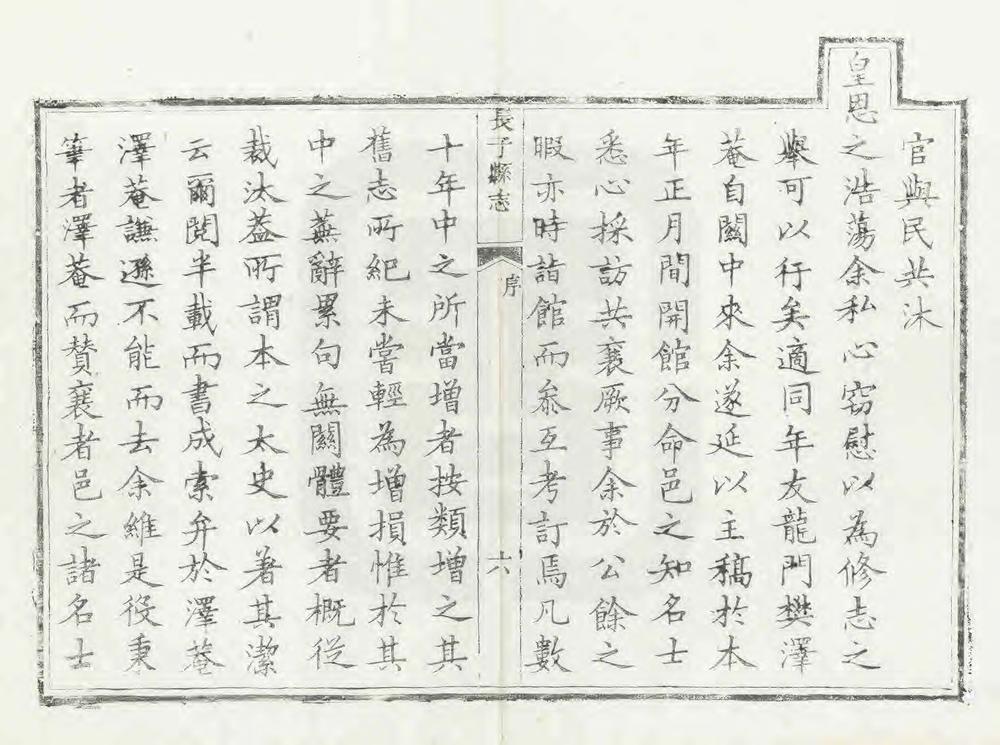 官與民共沐
皇恩之浩蕩余私心窃慰以為修志之
舉可以行矣適同年友龍門樊澤
菴自關中來余遂延以主稿於本
年正月間開館分命邑之知名士
悉心採訪共襄厥事余於公餘之
暇亦時詣館而叅互考訂焉凡數
長子縣志
序
六
十年中之所當增者按類增之其
舊志所紀未嘗輕為增損惟於其
中之蕪辭累句無關體要者概從
裁汰葢所謂本之太史以著其潔
云爾閱半載而書成索弁於澤菴
澤菴謙遜不能而去余維是役秉
筆者澤菴而賛襄者邑之諸名士